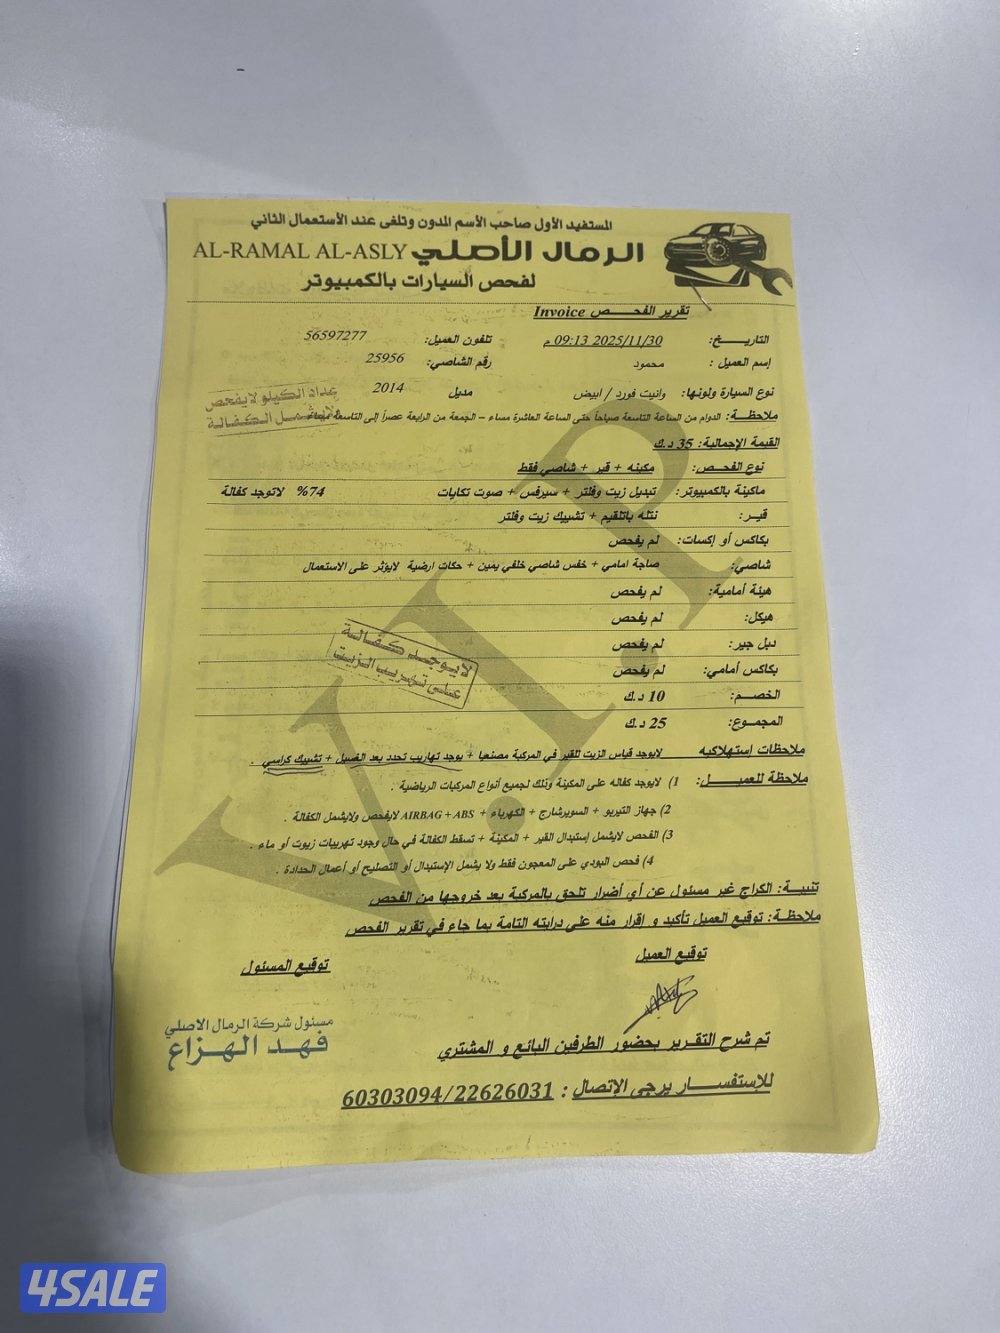 المستفيد الأول صاحب الأسم المدون وتلغى عند الأستعمال الثاني
الرمال الأصلي AL-RAMAL AL-ASLY
لفحص السيارات بالكمبيوتر
تقرير الفحـــــص Invoice
التاريـــــخ: 2025/11/30 09:13 م
تلفون العميل: 56597277
إسم العميل : محمود
رقم الشاصي: 25956
نوع السيارة ولونها: وانيت فورد / ابيض
مديل 2014
عداد الكيلو لايفحص
ولايشمل الكفالة
ملاحظـــة: الدوام من الساعة التاسعة صباحاً حتى الساعة العاشرة مساء – الجمعة من الرابعة عصراً إلى التاسعة مساء
القيمة الإجمالية: 35 د.ك
نوع الفحـص: مكينه + قير + شاصي فقط
ماكينة بالكمبيوتر: تبديل زيت وفلتر + سيرفس + صوت تكايات 74% لاتوجد كفالة
قيـر: نتله باتلقيم + تشييك زيت وفلتر
بكاكس أو إكسات: لم يفحص
شاصي: صاجة امامي + خفس شاصي خلفي يمين + حكات ارضية لايؤثر على الاستعمال
هيئة أمامية: لم يفحص
هيكل: لم يفحص
دبل جير: لم يفحص
بكاكس أمامي: لم يفحص
لايوجد كفالة
على تهريب الزيت
الخصـــم: 10 د.ك
المجمـوع: 25 د.ك
ملاحظات إستهلاكيه لايوجد قياس الزيت للقير في المركبة مصنعيا + يوجد تهاريب تحدد بعد الغسيل + تشييك كراسي .
ملاحظة للعميـــل: 1) لايوجد كفاله على المكينة وذلك لجميع أنواع المركبات الرياضية .
2) جهاز التيربو + السوبرشارج + الكهرباء + AIRBAG + ABS لايفحص ولايشمل الكفالة .
3) الفحص لايشمل إستبدال القير + المكينة + تسقط الكفالة في حال وجود تهريبات زيوت أو ماء .
4) فحص البودي على المعجون فقط ولا يشمل الإستبدال أو التصليح أو أعمال الحدادة .
تنبيـــة: الكراج غير مسئول عن أي أضرار تلحق بالمركبة بعد خروجها من الفحص
ملاحظـة: توقيع العميل تأكيد و إقرار منه على درايته التامة بما جاء في تقرير الفحص
توقيع العميل
توقيع المسئول
مسئول شركة الرمال الاصلي
فهد الهزاع
تم شرح التقرير بحضور الطرفين البائع و المشتري
للإستفســـار يرجى الإتصال : 60303094/22626031
V.I.P
4SALE